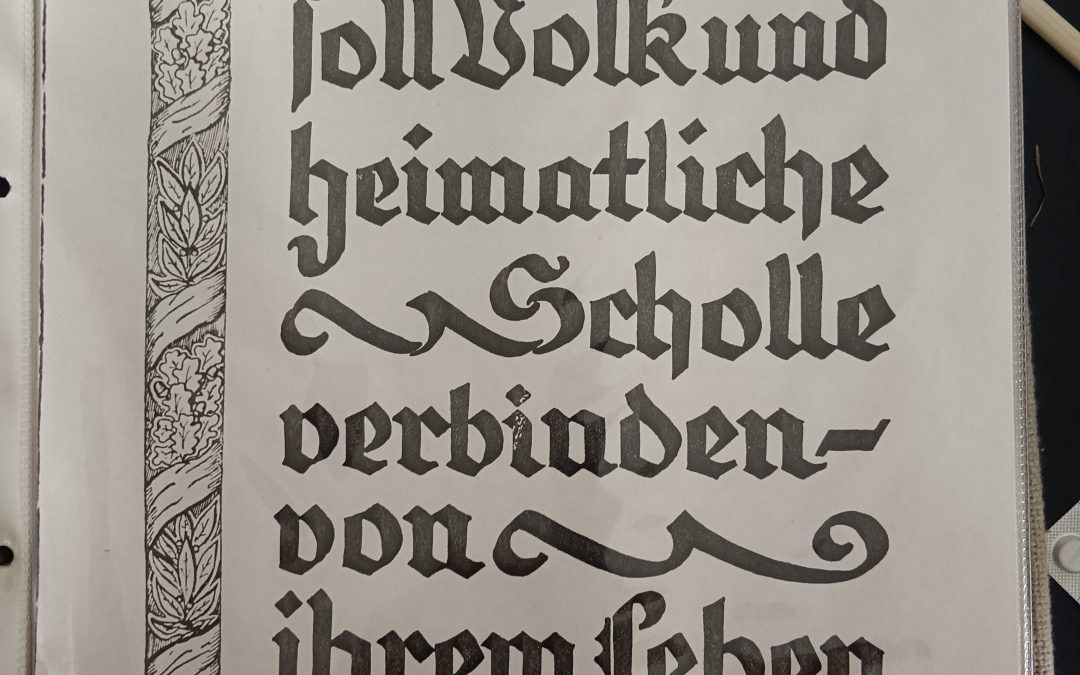 soll Volk und
heimatliche
Scholle
verbinden-
von
ihrem Leben